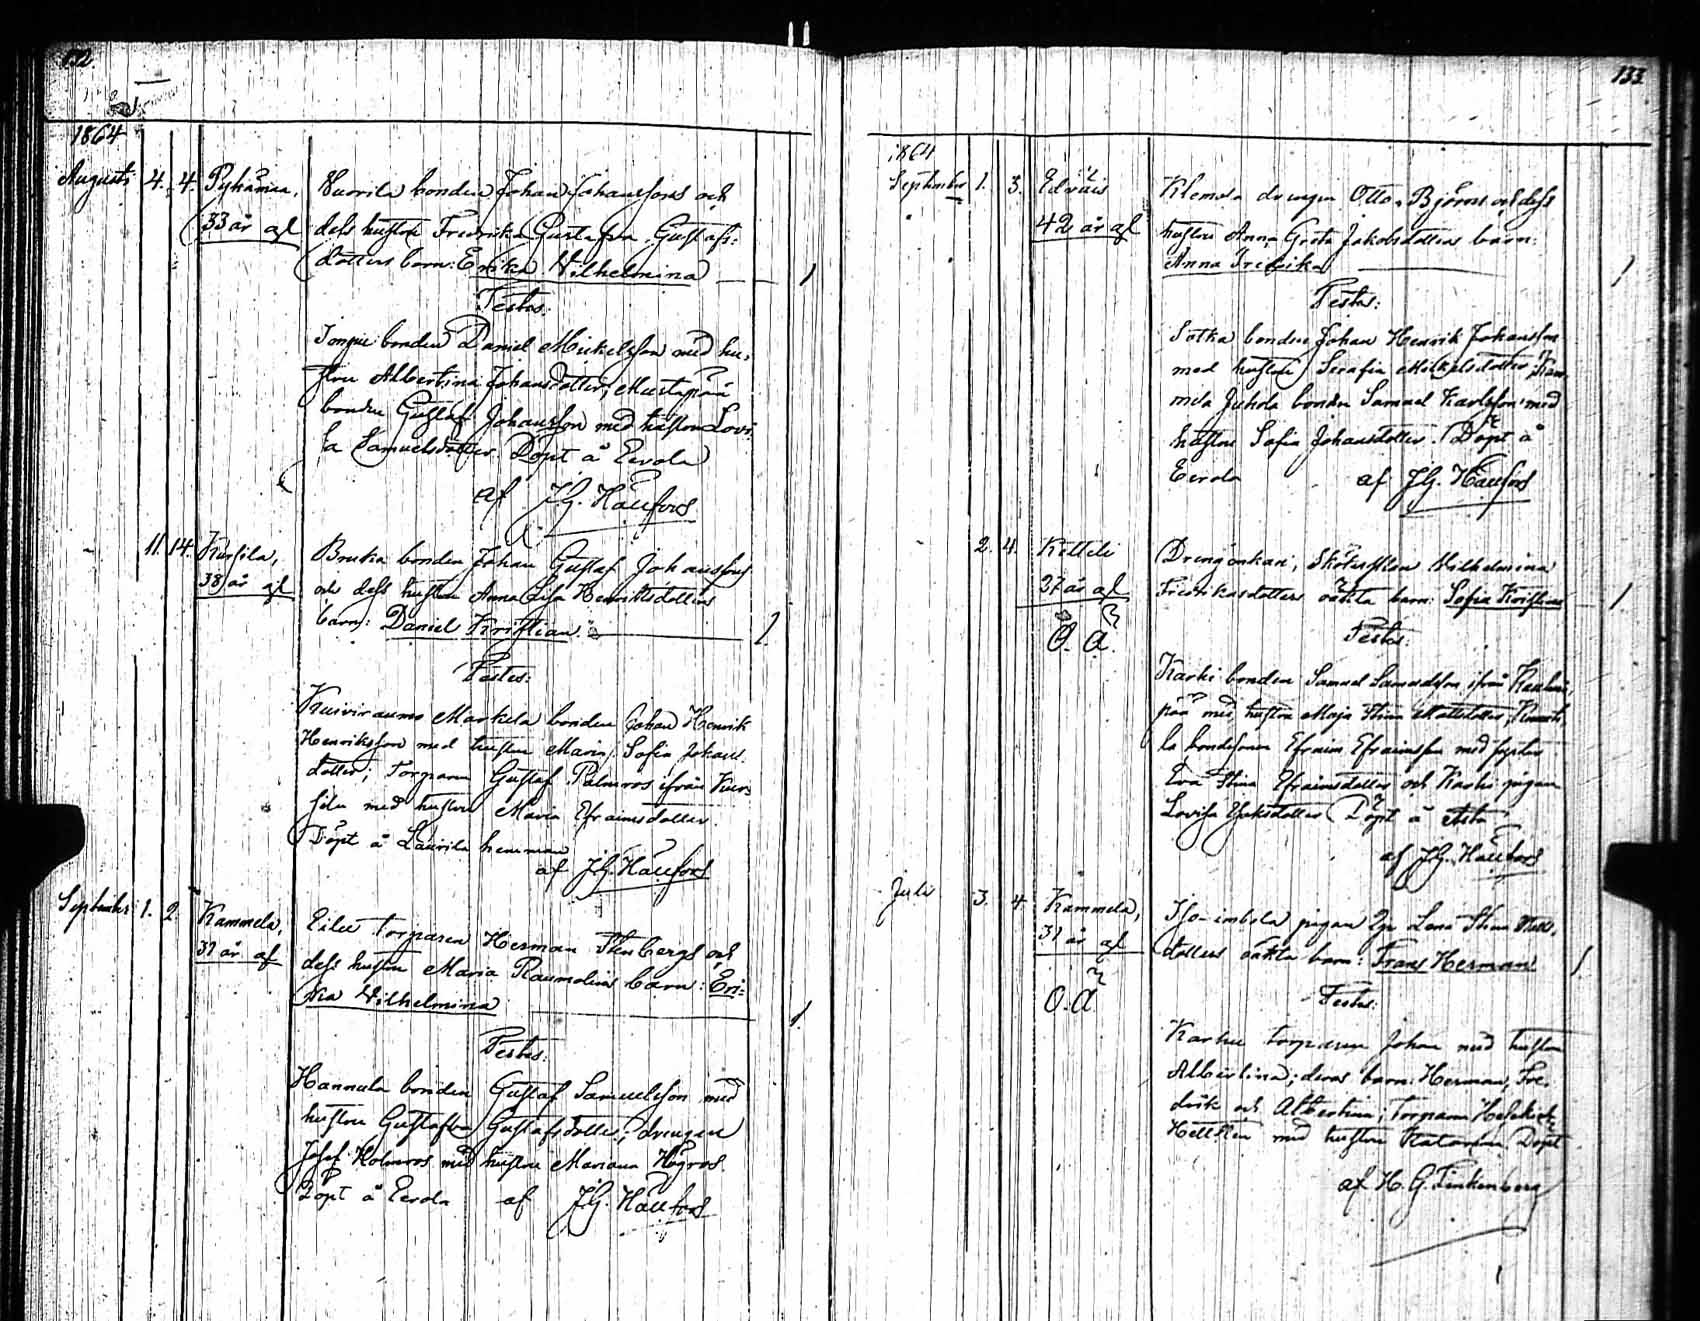 132
1864
Augusti 4. 4. Pyhäraa,
33 år gl
Vuorila bonden Johan Johanssons och
dess hustru Fredrika Gustafva Gustafs:
dotters barn: Erika Wilhelmina
Testes:
bonden Daniel Mickelsson med hu-
stru Albertina Johansdotter, Mustapää
bonden Gustaf Johansson med hustru Lovi-
sa Samuelsdotter. Döpt å Eerola
af J.G. Hällfors
11. 14. Kursila,
38 år gl
Bruka bonden Johan Gustaf Johanssons
och dess hustru Anna Lisa Henriksdotters
barn: Daniel Kristian.
Testes:
Kuiviraumo Markela bonden Johan Henrik
Henriksson med hustru Maria Sofia Johans-
dotter; Torparen Gustaf Palmros ifrån Kur-
sila med hustru Maria Efraimsdotter.
Döpt å Laurila hemman
af J.G. Hällfors
September 1. 2. Kammela,
31 år gl
torparen Herman Stenbergs och
dess hustru Maria Raumolins barn: Eri-
ka Wilhelmina
Testes:
Hannula bonden Gustaf Samuelsson med
hustru Gustafva Gustafsdotter; drengen
Josef Holmros med hustru Mariana Högros.
Döpt å Eerola af J.G. Hällfors
133
1864
September 1. 3.
42 år gl
Klemola drengen Otto Björros och dess
hustru Anna Greta Jakobsdotters barn:
Anna Fredrika
Testes:
Sotka bonden Johan Henrik Johansson
med hustru Serafia Mickelsdotter, Kam-
mela Juhola bonden Samuel Karlsson med
hustru Sofia Johansdotter. Döpt å
Eerola af J.G. Hällfors
2. 4. Kytteli
27 år gl
O. Ä.
Wilhelmina
Fredrikasdotters oäkta barn: Sofia Kristina
Testes:
Karhi bonden Samuel Samuelsson ifrån
med hustru Maja Stina Mattsdotter,
la bondesonen Efraim Efraimsson med syster
Eva Stina Efraimsdotter och Karhi pigan
Lovisa Isaksdotter. Döpt å
af J.G. Hällfors
Juli 3. 4. Kammela,
31 år gl
O. Ä.
Iso-imbola pigan Lena Stina
dotters oäkta barn: Frans Herman
Testes:
Karhu torparen Johan med hustru
Albertina; deras barn: Herman, Fre-
drik och Albertina; Torparen
Hellsten med hustru Katarina. Döpt
af H. G. Finkenberg